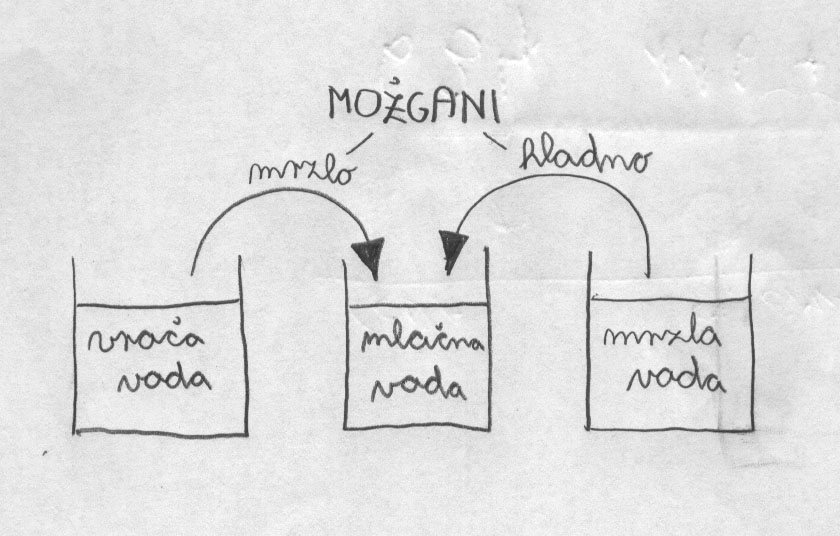 MOŽGANI
mrzlo
hladno
vroča
voda
mlačna
voda
mrzla
voda